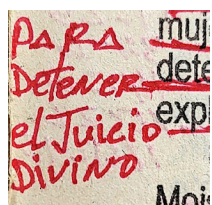 PARA
Detener
el Juicio
Divino
muj
dete
exp
Mois